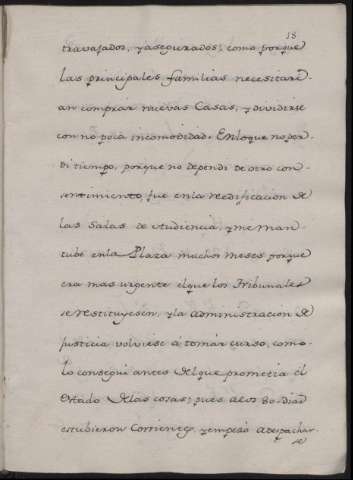 18
travajados, y asegurados; como porque
las principales familias necesitari-
an comprar nuevas Casas, y dividirse
con no poca incomodidad. En loque no per-
di tiempo, porque no dependi de otro con-
sentimiento, fue enla reedificacion de
las Salas de Audiencia, y me man-
tube enla Plaza muchos meses porque
era mas urgente elque los Tribunales
se restituyesen, y la administracion de
Justicia volviese a tomar curso, como
lo consegui antes delque prometia el
Estado delas cosas; pues alos 80 dias
estubieron Corrientes, y empesó a despachar-
se